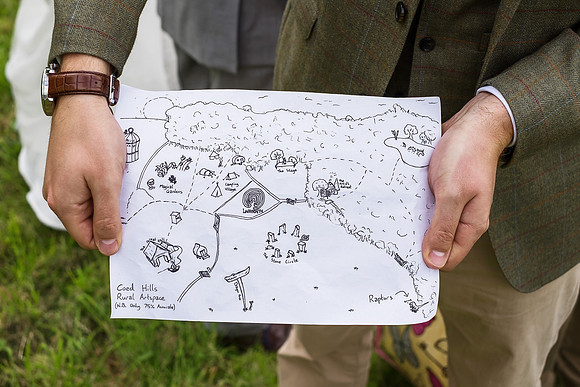 The Village
Magical
Gardens
Camping
Village
Labyrinth
Stone Circle
Coed Hills
Rural Artspace
(N.B. Only 75% Accurate)
Raptors